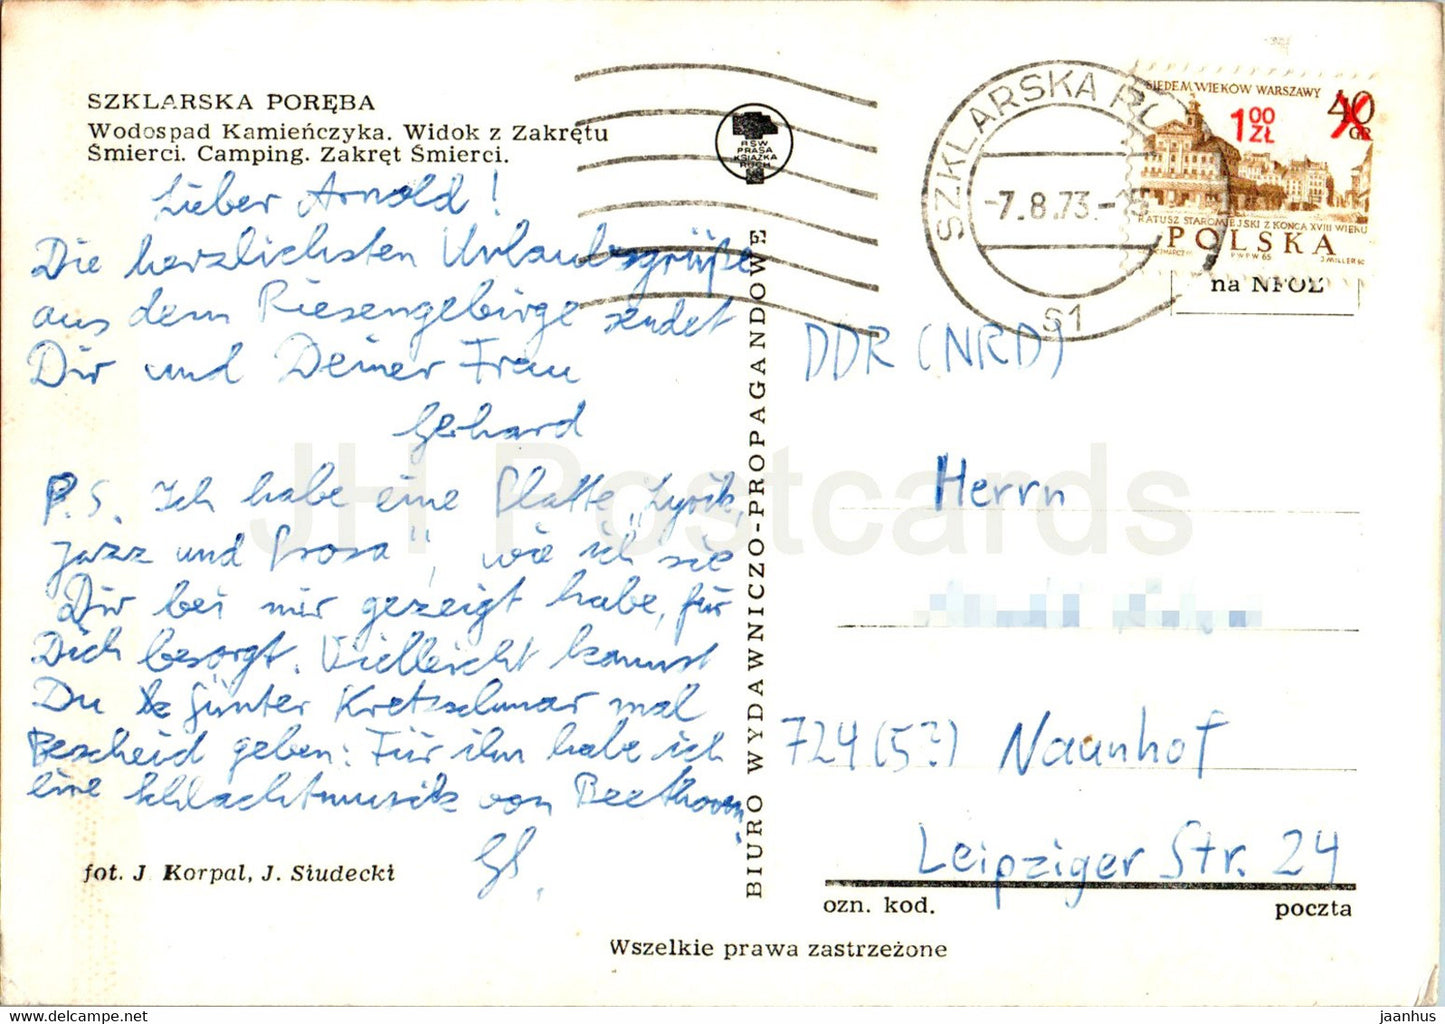 SZKLARSKA PORĘBA
Wodospad Kamieńczyka. Widok z Zakrętu
Śmierci. Camping. Zakręt Śmierci.
Lieber Arnold!
Die herzlichsten Urlaubsgrüße
aus dem Riesengebirge sendet
Dir und Deiner Frau
Gerhard
P.S. Ich habe eine Platte „Lyrik,
Jazz und Prosa", wie ich sie
Dir bei mir gezeigt habe, für
Dich besorgt. Vielleicht kannst
Du Günter Kretzschmar mal
Bescheid geben: Für ihn habe ich
eine Schlachtmusik von Beethoven.
fot. J. Korpal, J. Siudecki
RSW
PRASA
KSIĄŻKA
RUCH
BIURO WYDAWNICZO-PROPAGANDOWE
SZKLARSKA
-7.8.73.-
S1
SIEDEM WIEKÓW WARSZAWY
1 00 ZŁ
40 GR
RATUSZ STAROMIEJSKI Z KOŃCA XVIII WIEKU
POLSKA
PWPW 65
J.MILLER SC
na NFOZ
DDR (NRD)
Herrn
724(5?) Naunhof
Leipziger Str. 24
ozn. kod.
poczta
Wszelkie prawa zastrzeżone
JH Postcards
jaanhus — https://jhpostcards.com